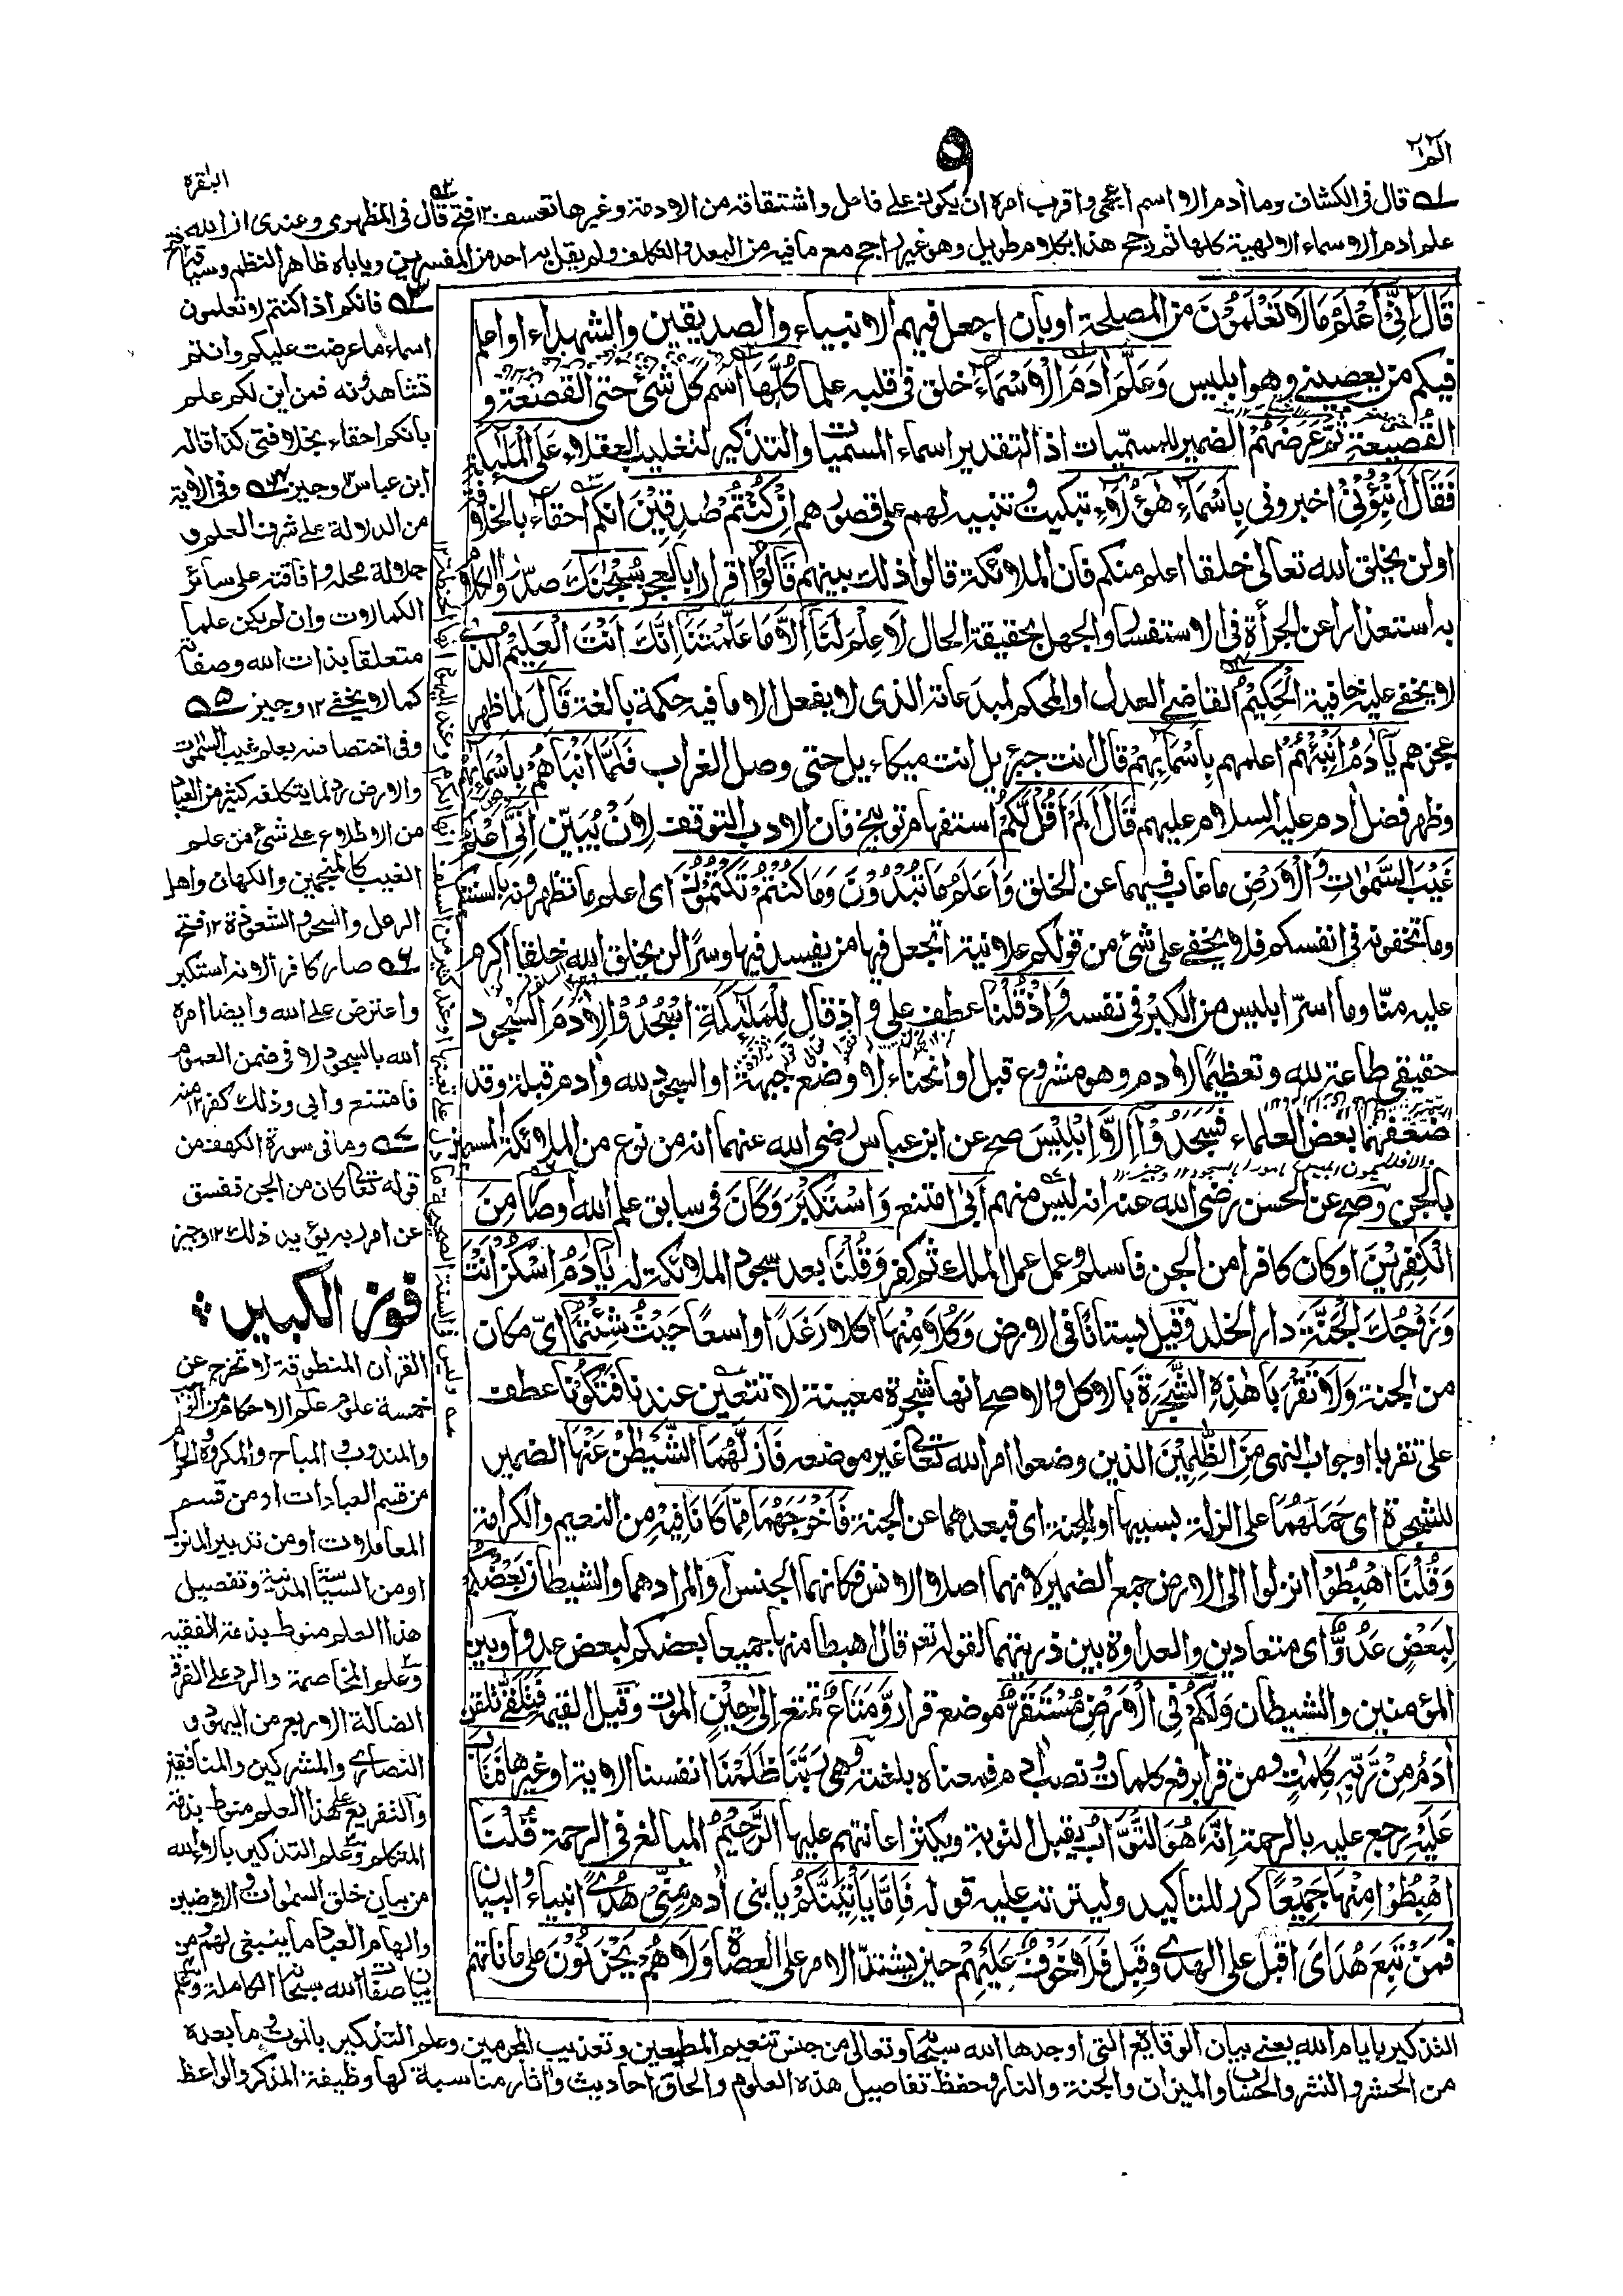 الم ١
٩
البقرة
١ه قال في الكشاف وما أدم الا اسم اعجمى واقرب امره ان يكون على فاعل واشتقاقه من الادمة وغيرها تعسف ١٢ فتح ٢ه قال في المظهرى وعندى ان الله
علم ادم الاسماء الالهية كلها ثم رجح هذا بكلام طويل وهو غير راجح مع ما فيه من البعد والتكلف ولم يقل به احد من المفسرين وياباه ظاهر النظم وسياقه
قَالَ اِنِّىْ اَعْلَمُ مَا لَا تَعْلَمُوْنَ من المصلحة او بان اجعل فيهم الانبياء والصديقين والشهداء او اعلم
فيكم من يعصينى وهو ابليس وَعَلَّمَ اٰدَمَ الْاَسْمَاءَ خلق فى قلبه علما كُلَّهَا اسم كل شئ حتى القصعة و
القصيعة ثُمَّ عَرَضَهُمْ الضمير للمسميات اذ التقدير اسماء المسميات والتذكير لتغليب العقلاء عَلَى الْمَلٰٓئِكَةِ
فَقَالَ اَنْۢبِئُوْنِىْ اخبرونى بِاَسْمَآءِ هٰٓؤُلَآءِ تبكيت وتنبيه لهم على قصورهم اِنْ كُنْتُمْ صٰدِقِيْنَ انكم احقاء بالخلافة
او لن يخلق الله تعالى خلقا اعلم منكم فان الملائكة قالوا ذلك بينهم قَالُوْا اقرارا بالعجز سُبْحٰنَكَ صدروا الكلام
به استعذارا عن الجرأة فى الاستفسار والجهل بحقيقة الحال لَا عِلْمَ لَنَآ اِلَّا مَا عَلَّمْتَنَا اِنَّكَ اَنْتَ الْعَلِيْمُ الذى
لا يخفى عليه خافية الْحَكِيْمُ القاضى العدل او المحكم لمبدعاته الذى لا يفعل الا ما فيه حكمة بالغة قَالَ لما ظهر
عجزهم يٰٓاٰدَمُ اَنْۢبِئْهُمْ اعلمهم بِاَسْمَآئِهِمْ قال انت جبرئيل انت ميكاءيل حتى وصل الغراب فَلَمَّآ اَنْۢبَاَهُمْ بِاَسْمَآئِهِمْ
وظهر فضل أدم عليه السلام عليهم قَالَ اَلَمْ اَقُلْ لَّكُمْ استفهام توبيخ فان الادب التوقف لان يُبَيَّن اِنِّىْٓ اَعْلَمُ
غَيْبَ السَّمٰوٰتِ وَالْاَرْضِ ما غاب فيهما عن الخلق وَاَعْلَمُ مَا تُبْدُوْنَ وَمَا كُنْتُمْ تَكْتُمُوْنَ اى اعلم ما تظهرونه بالسنتكم
وما تخفونه فى انفسكم فلا يخفى على شئ من قولكم علانية اتجعل فيها من يفسد فيها وسرًّا لن يخلق الله خلقا اكرم
عليه منّا وما اسرّ ابليس من الكبر فى نفسه وَاِذْ قُلْنَا عطف على واذ قال لِلْمَلٰٓئِكَةِ اسْجُدُوْا لِاٰدَمَ السجود
حقيقى طاعة لله وتعظيمًا لادم وهو مشروع قبل او انحناء لا وضع جبهة او السجود لله وأدم قبلة وقد
ضعفهما بعض العلماء فَسَجَدُوْٓا اِلَّآ اِبْلِيْسَ صح عن ابن عباس رضى الله عنهما انه من نوع من الملائكة المسمين
بالجن وصح عن الحسن رضى الله عنه انه ليس منهم اَبٰى امتنع وَاسْتَكْبَرَ وَكَانَ فى سابق علم الله او صار مِنَ
الْكٰفِرِيْنَ او كان كافرا من الجن فاسلم وعمل عمل الملك ثم كفر وَقُلْنَا بعد سجود الملائكة له يٰٓاٰدَمُ اسْكُنْ اَنْتَ
وَزَوْجُكَ الْجَنَّةَ دار الخلد وقيل بستانًا فى الارض وَكُلَا مِنْهَا اكلا رَغَدًا واسعًا حَيْثُ شِئْتُمَا اىّ مكان
من الجنة وَلَا تَقْرَبَا هٰذِهِ الشَّجَرَةَ بالاكل والاصح انها شجرة معينة لا تتعين عندنا فَتَكُوْنَا عطف
على تقربا او جواب النهى مِنَ الظّٰلِمِيْنَ الذين وضعوا امر الله تعالى غير موضعه فَاَزَلَّهُمَا الشَّيْطٰنُ عَنْهَا الضمير
للشجرة اى حملهما على الزلة بسببها او للجنة اى فبعدهما عن الجنة فَاَخْرَجَهُمَا مِمَّا كَانَا فِيْهِ من النعيم والكرامة
وَقُلْنَا اهْبِطُوْا انزلوا الى الارض جمع الضمير لانهما اصلا الانس فكانهما الجنس او المراد هما والشيطان بَعْضُكُمْ
لِبَعْضٍ عَدُوٌّ اى متعادين والعداوة بين ذريتهما لقوله تعم قال اهبطا منها جميعا بعضكم لبعض عدو او بين
المؤمنين والشيطان وَلَكُمْ فِى الْاَرْضِ مُسْتَقَرٌّ موضع قرار وَّمَتَاعٌ تمتع اِلٰى حِيْنٍ الموت وقيل القيمة فَتَلَقّٰٓى تلقن
اٰدَمُ مِنْ رَّبِّهٖ كَلِمٰتٍ ومن قرأ برفع كلمات ونصب أدم فمعناه بلغته وهى رَبَّنَا ظَلَمْنَآ انفسنا الاية او غيرها فَتَابَ
عَلَيْهِ رجع عليه بالرحمة اِنَّهٗ هُوَ التَّوَّابُ يقبل التوبة ويكثر اعانتهم عليها الرَّحِيْمُ المبالغ فى الرحمة قُلْنَا
اهْبِطُوْا مِنْهَا جَمِيْعًا كرر للتاكيد وليترتب عليه قوله فَاِمَّا يَاْتِيَنَّكُمْ يا بنى أدم مِّنِّىْ هُدًى انبياء والبيان
فَمَنْ تَبِعَ هُدَاىَ اقبل على الهدى وقبل فَلَا خَوْفٌ عَلَيْهِمْ حين يشتد الامر على العصاة وَلَا هُمْ يَحْزَنُوْنَ على ما فاتهم
٣ه فانكم اذا كنتم لا تعلمون
اسماء ما عرضت عليكم وانتم
تشاهدونه فمن اين لكم علم
بانكم احقاء بخلافتى كذا قاله
ابن عباس ١٢ وجيز ٤ه وفى الاية
من الدلالة على شرف العلم و
جلالة محله وانافته على سائر
الكمالات وان لم يكن علما
متعلقا بذات الله وصفاته
كما لا يخفى ١٢ وجيز ٥ه
وفى اختصاصه بعلم غيب السموات
والارض رد لما يتكلفه كثير من العباد
من الاطلاع على شئ من علم
الغيب كالمنجمين والكهان واهل
الرمل والسحر والشعوذة ١٢ فتح
٦ه صار كافرا لانه استكبر
واعترض على الله وايضا امره
الله بالسجود لا فى ضمن العموم
فامتنع وابى وذلك كفر ١٢ منه
٧ه وما فى سورة الكهف من
قوله تعالى كان من الجن ففسق
عن امر ربه يؤيد ذلك ١٢ وجيز
فوز الكبير
القرأن المنطوقة لا تخرج عن
خمسة علوم علم الاحكام من الواجب
والمندوب والمباح والمكروه والحرام
من قسم العبادات او من قسم
المعاملات او من تدبير المنزل
او من السياسة المدنية وتفصيل
هذا العلم منوط بذمة الفقيه
وعلم المخاصمة والرد على الفرق
الضالة الاربع من اليهود و
النصارى والمشركين والمنافقين
والتفريع على هذا العلم منوط بذمة
المتكلم وعلم التذكير بالاء الله
من بيان خلق السموات والارضين
والهام العباد ما ينبغى لهم من
بيان صفات الله سبحانه الكاملة وعلم
التذكير بايام الله يعنى بيان الوقايع التى اوجدها الله سبحانه وتعالى من جنس تنعيم المطيعين وتعذيب المجرمين وعلم التذكير بالموت وما بعده
من الحشر والنشر والحساب والميزان والجنة والنار وحفظ تفاصيل هذه العلوم والحاق احاديث واثار مناسبة لها وظيفة المذكر والواعظ